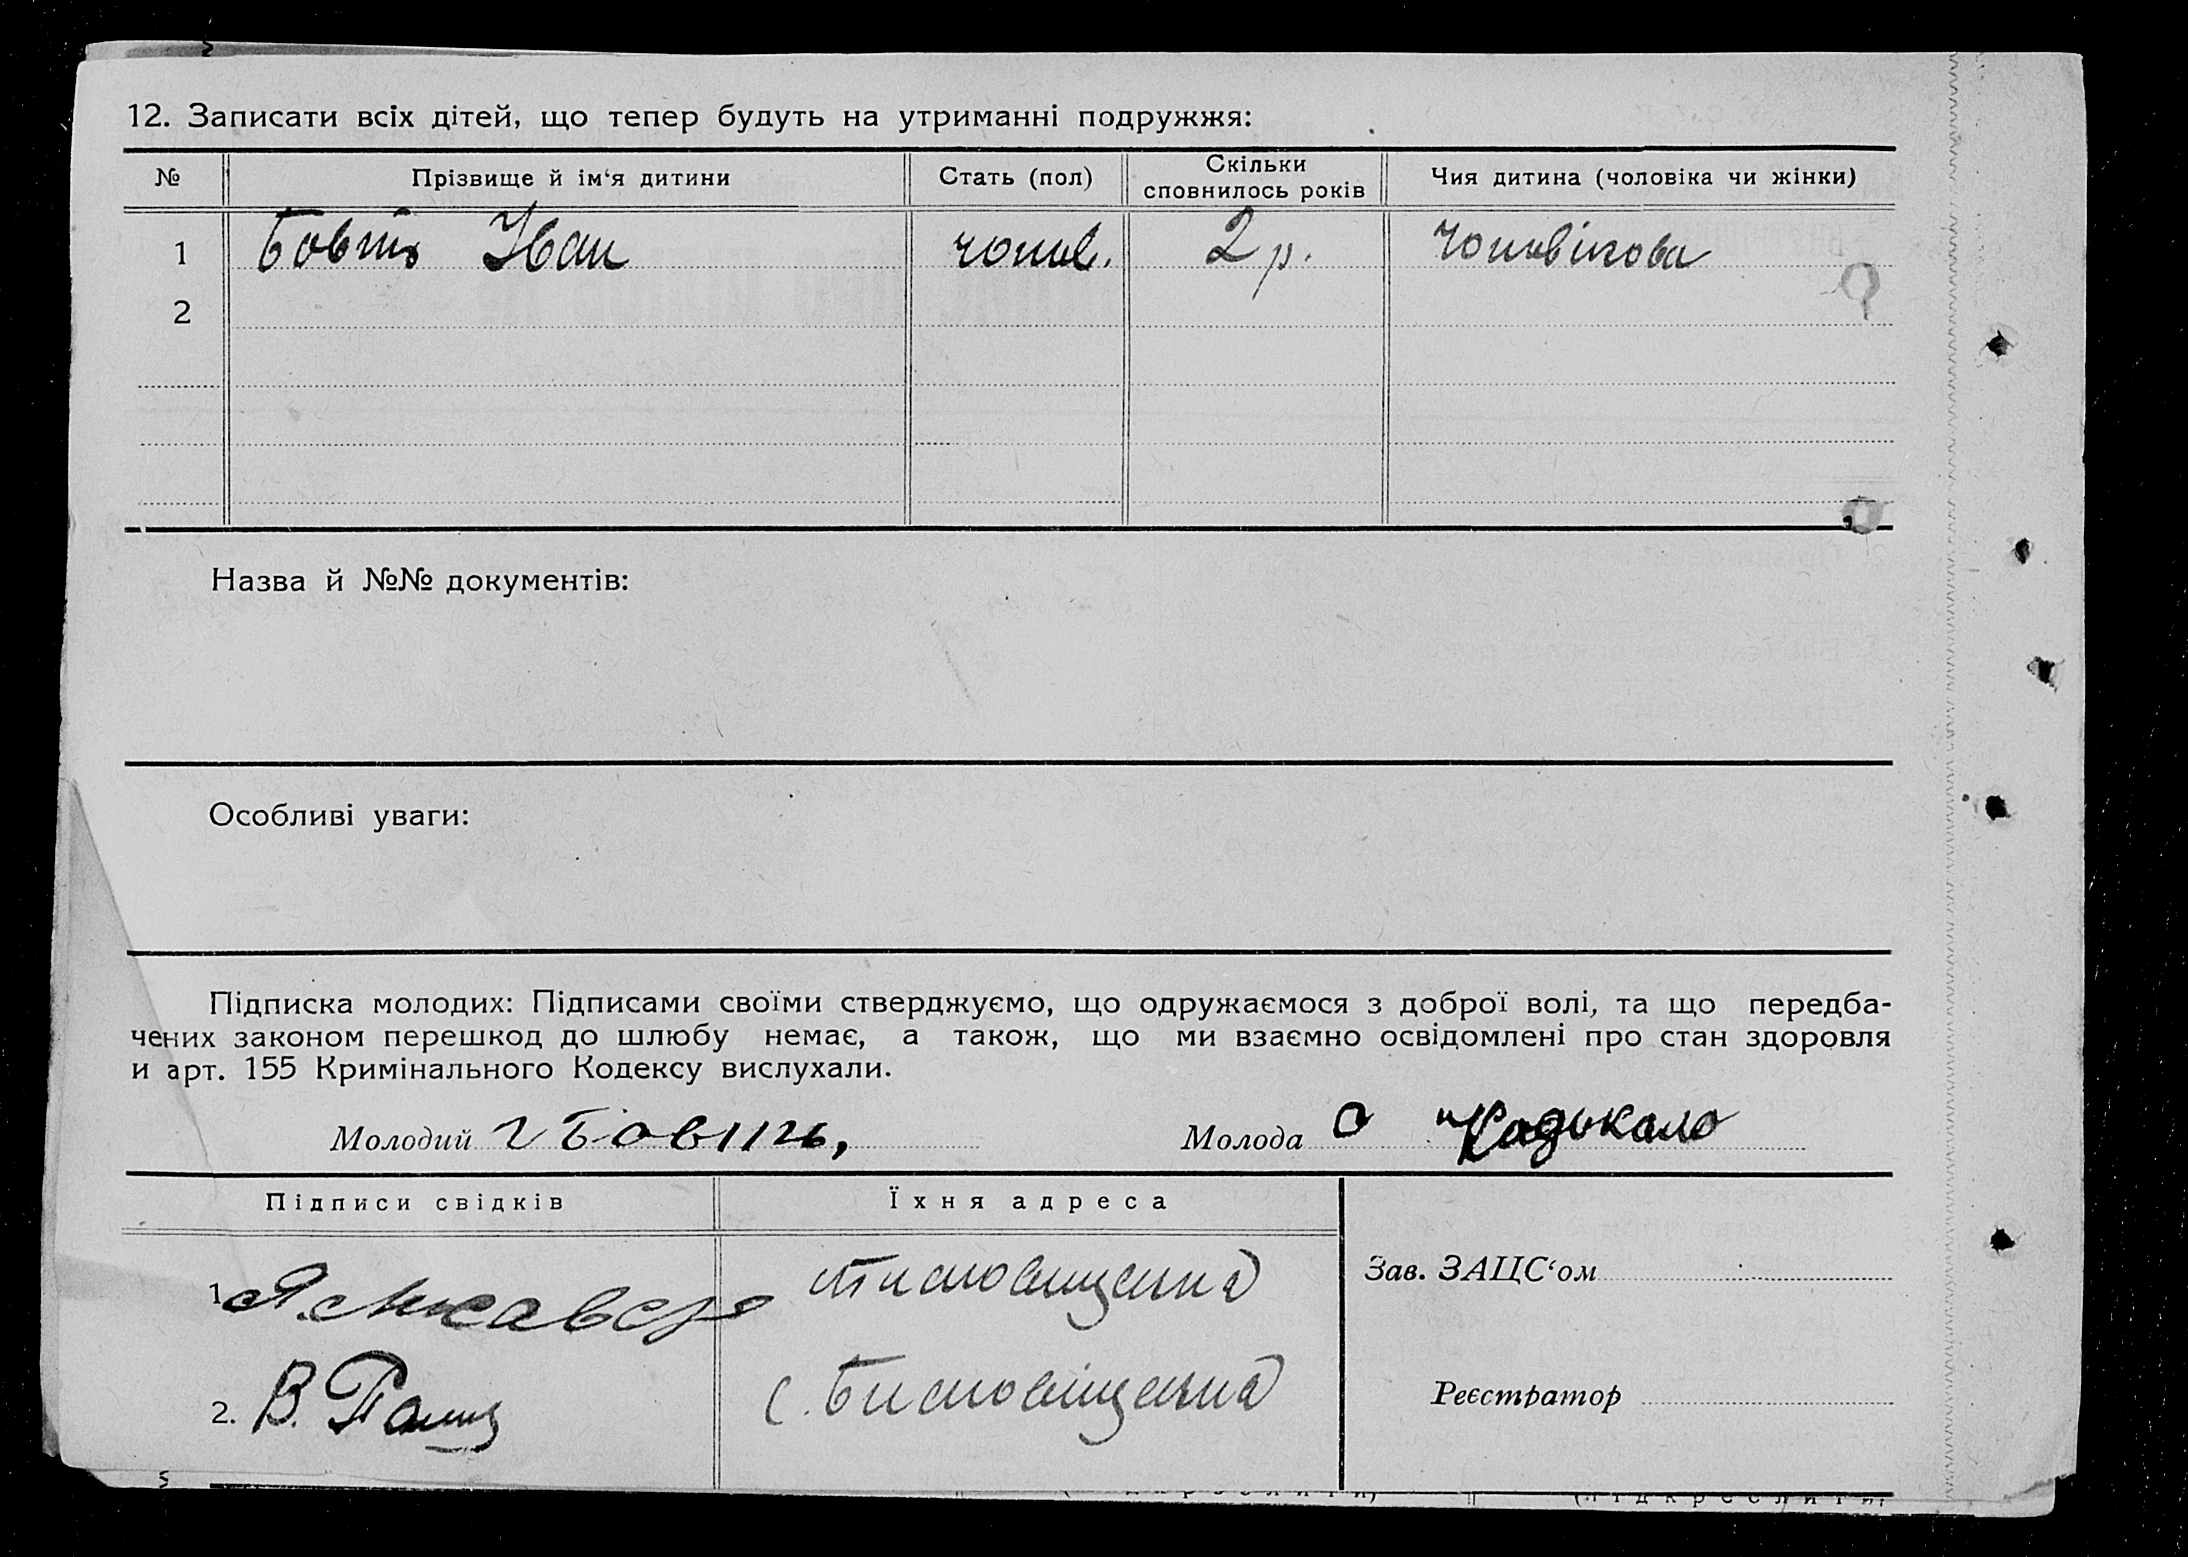 12. Записати всіх дітей, що тепер будуть на утриманні подружжя:
№ Прізвище й ім'я дитини Стать (пол) Скільки сповнилось років Чия дитина (чоловіка чи жінки)
1 Бовть Іван чолов. 2 р. чоловікова
2
Назва й №№ документів:
Особливі уваги:
Підписка молодих: Підписами своїми стверджуємо, що одружаємося з доброї волі, та що передба-
чених законом перешкод до шлюбу немає, а також, що ми взаємно освідомлені про стан здоровля
и арт. 155 Кримінального Кодексу вислухали.
Молодий Молода
Підписи свідків Їхня адреса
Зав. ЗАЦС'ом
1
2. В. с.
Реєстратор
(підкреслити)